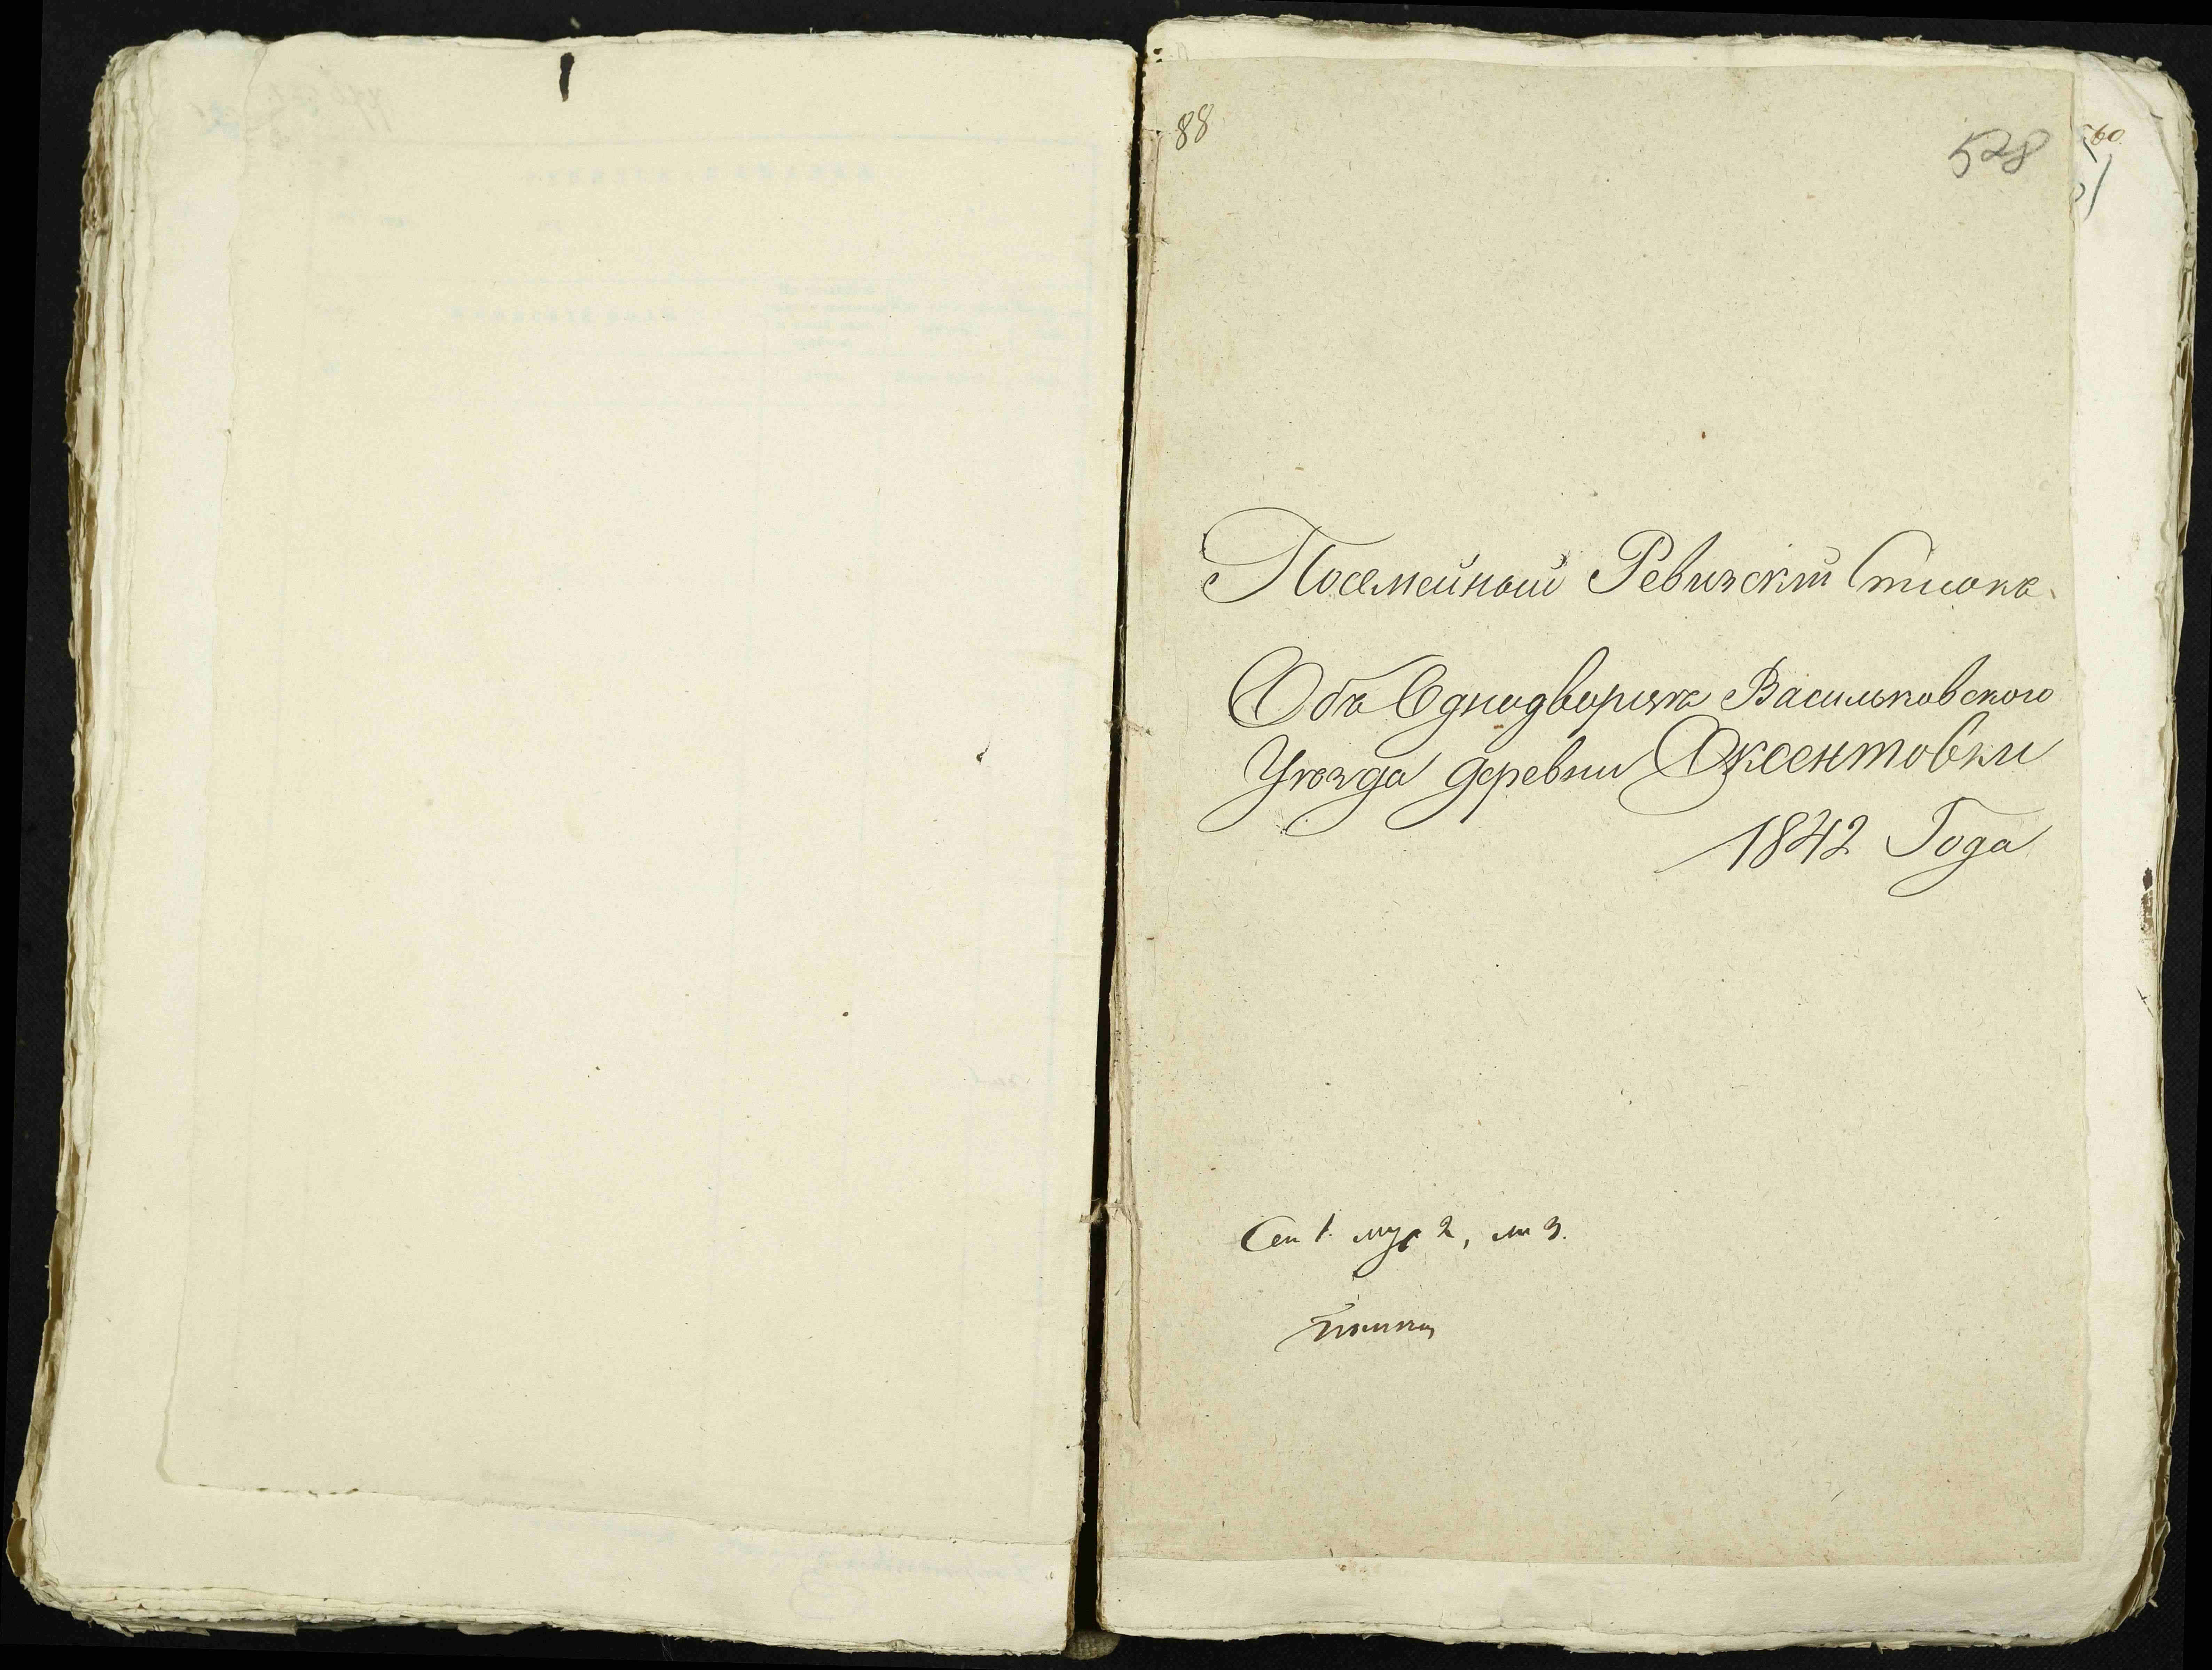 88
528
560
Посемейный Ревизский Список
Объ Однодворцахъ Васильковского
Уѣзда деревни Оксентовки
1842 Года
Сем 1. муж 2, ж 3.